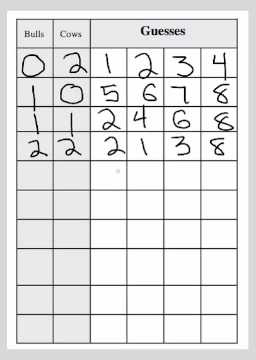 Bulls Cows Guesses
0 2 1 2 3 4
1 0 5 6 7 8
1 1 2 4 6 8
2 2 2 1 3 8